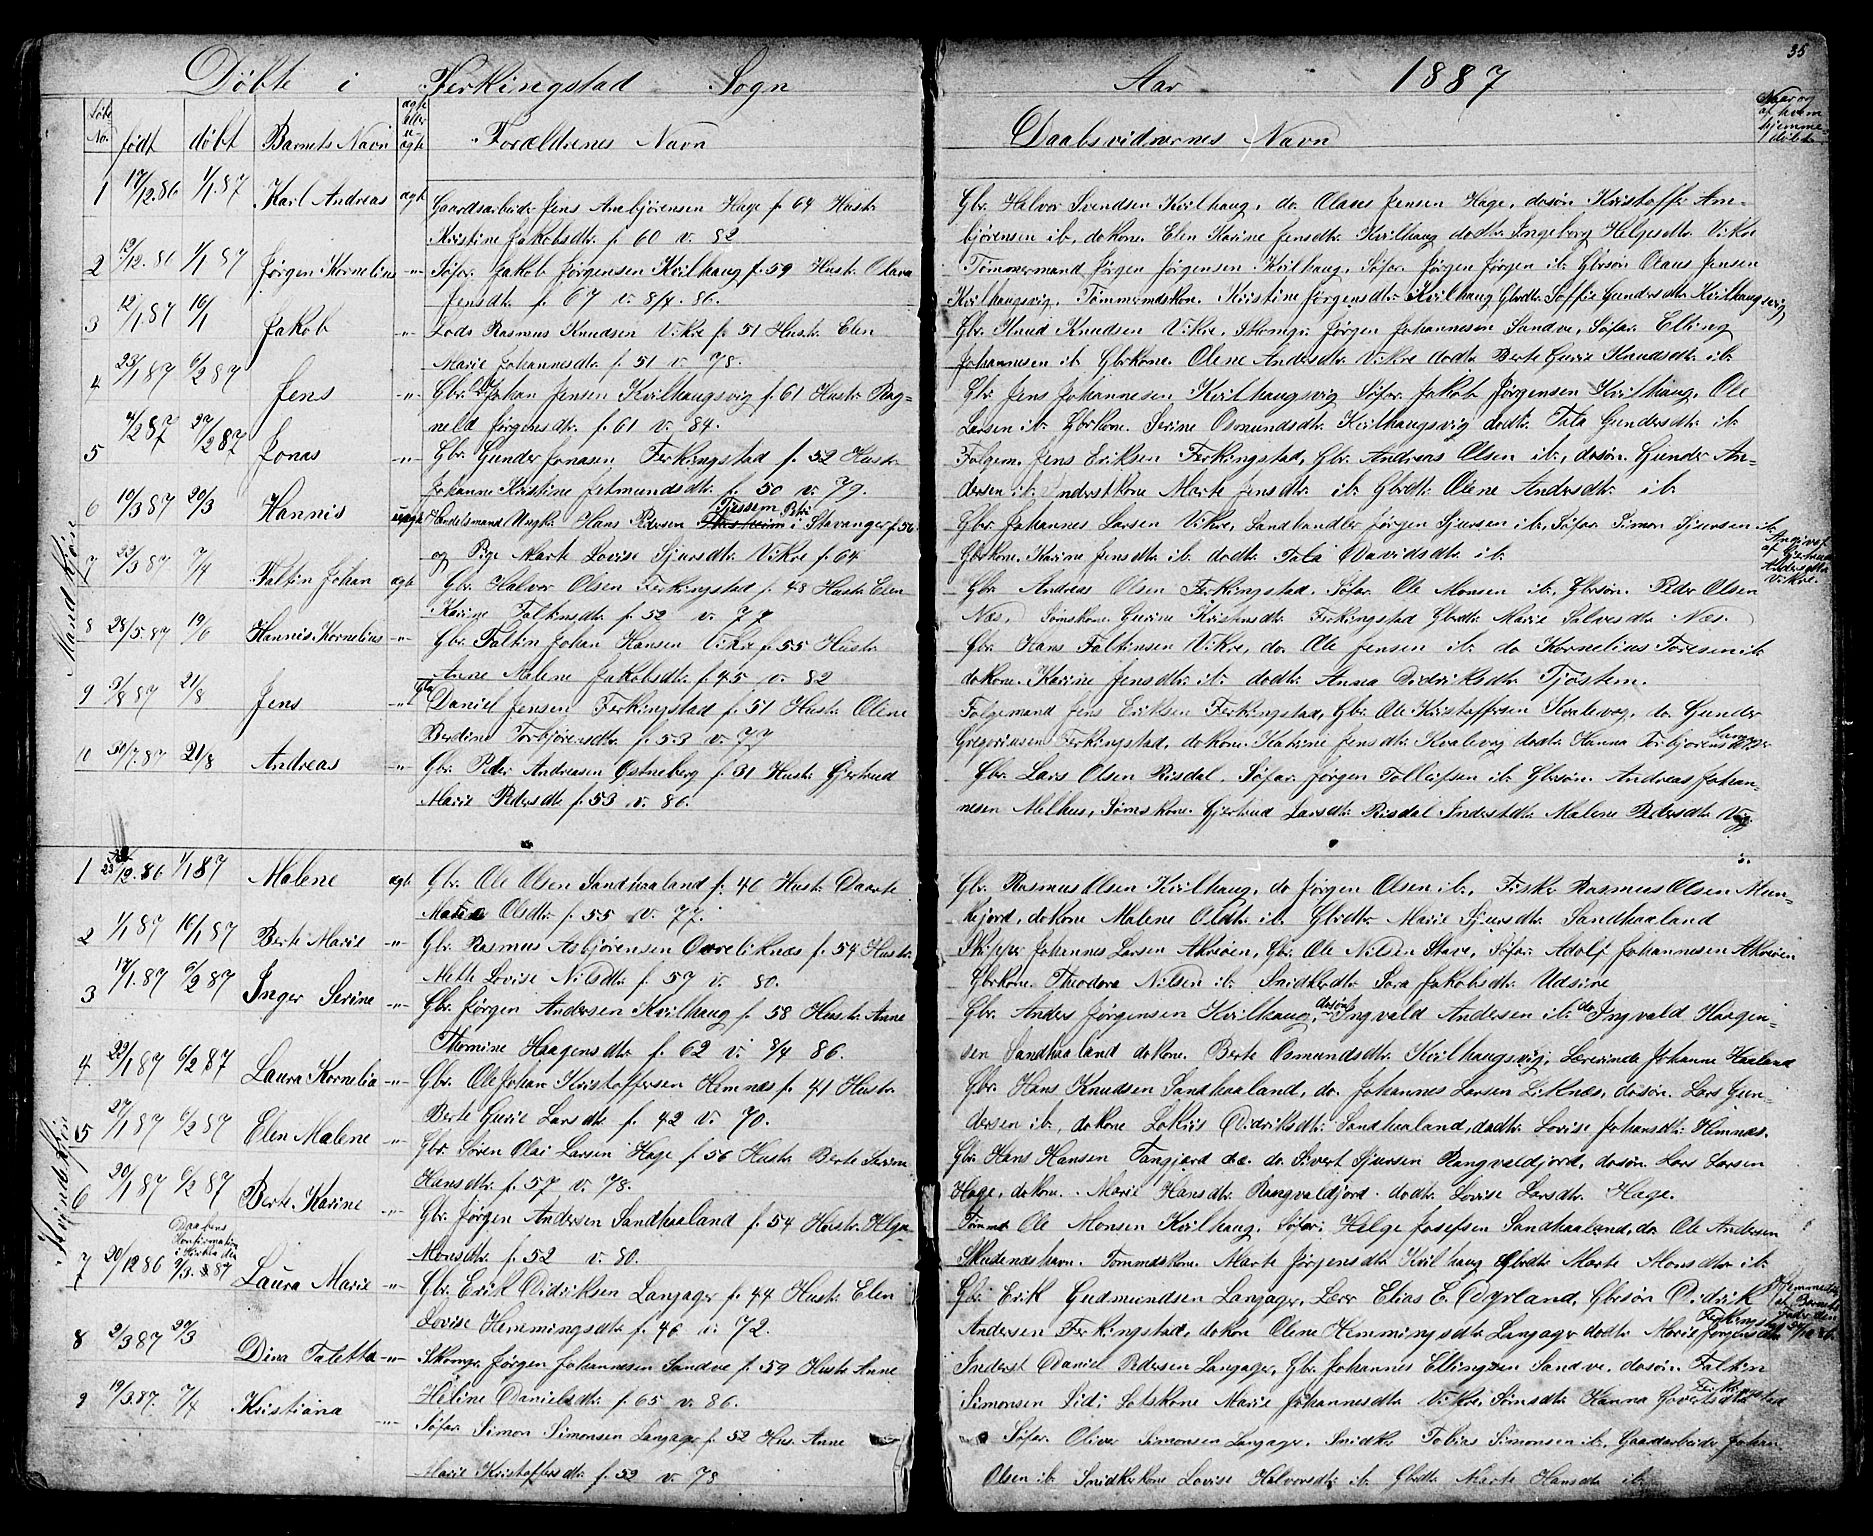 35
Döbte i Ferkingstad Sogn Aar 1887
Löbe No. födt döbt Barnets Navn ægte eller uægte Forældrenes Navn Daabsvidnernes Navn Naar og af hvem hjemmedöbt
Mandkjön
1 17/12.86 1/1.87 Karl Andreas ægte Gaardsarbeider Jens Arnbjörensen Hage f. 64 Hustr.
Kristine Jakobsdtr. f. 60 v. 82
Gbr. Halvor Svendsen Kvilhaug, do. Olaus Jensen Hage, dosön Kristoffer Arn-
björensen ib., dokone. Elen Karine Jensdtr. Kvilhaug dodtr. Ingeborg Helgesdtr. Vikre
2 12/12.86 1/1 87 Jörgen Kornelius -"- Söfar. Jakob Jörgensen Kvilhaug f. 59 Hustr. Olava
Jensdtr. f. 67 v. 8/4. 86.
Tömmermand Jörgen Jörgensen Kvilhaug, Söfar. Jörgen Jörgen ib. Gbrsön Olaus Jensen
Kvilhaugsvig, Tömmermdskone. Kristine Jörgensdtr. Kvilhaug Gbrdtr. Soffie Gundersdtr. Kvilhaugsvig
3 12/1.87 16/1 Jakob -"- Lods Rasmus Knudsen Vikre f. 51 Hustr. Elen
Marie Johannesdtr. f. 51 v. 78.
Gbr. Knud Knudsen Vikre, Skomgr. Jörgen Johannesen Sandve, Söfar. Elling
Johannesen ib. Gbrkone. Olene Andersdtr. Vikre dodtr. Berte Gurie Knudsdtr. ib.
4 23/1 87 6/2 87 Jens -"- Gbr. Johan Jensen Kvilhaugsvig f. 61 Hustr. Rag-
neld Jörgensdtr. f. 61 v. 84.
Gbr. Jens Johannesen Kvilhaugsvig Söfar. Jakob Jörgensen Kvilhaug, Ole
Larsen ib. Gbrkone. Serine Osmundsdtr. Kvilhaugsvig dodtr. Tala Gundersdtr. ib.
5 4/2 87 27/2 87 Jonas -"- Gbr. Gunder Jonasen Ferkingstad f. 52 Hustr.
Johanne Kristine Jetmundsdtr. f. 50 v. 79.
Folgem. Jens Eriksen Ferkingstad, Gbr. Andreas Olsen ib., dosön. Gunder An-
dersen ib. Inderstkone Marte Jensdtr. ib. Gbrdtr. Olene Andersdtr. ib.
6 10/3 87 20/3 Hannis uægte Handelsmand Ungk. Hans Pedersen Tjessem i Stavanger f. 56
og Pige Marte Lovise Sjursdtr. Vikre f. 64
Gbr. Johannes Larsen Vikre, Sandhandler Jörgen Sjursen ib., Söfar. Simon Sjursen ib.
Gbrkone. Karine Jensdtr. ib. dodtr. Tala Davidsdtr. ib.
Angivet af Andersdtr. Vikre.
7 23/3 87 7/4 Faltin Johan ægte Gbr. Halvor Olsen Ferkingstad f. 48 Hustr. Elen
Karine Faltinsdtr. f. 52 v. 77
Gbr. Andreas Olsen Ferkingstad. Söfar. Ole Monsen ib., Gbrsön. Peder Olsen
Næs, Sömskone. Gurine Kristensdtr. Ferkingstad Gbrdtr. Marie Salvesdtr. Næs.
8 28/5.87 19/6 Hannis Kornelius -"- Gbr. Faltin Johan Hansen Vikre f. 55 Hustr.
Anne Malene Jakobsdtr. f. 45 v. 82
Gbr. Hans Faltinsen Vikre, do. Ole Jensen ib. do Kornelius Toresen ib.
dokone. Karine Jensdtr. ib. dodtr. Anna Didriksdtr. Tjöstem.
9 3/8 87 21/8 Jens -"- Gbr. Daniel Jensen Ferkingstad f. 51 Hustr. Olene
Berdine Torbjörensdtr. f. 53 v. 77
Folgemand Jens Eriksen Ferkingstad, Gbr. Ole Kristoffersen Kvalevag, do. Gunder
Gregoriusen Ferkingstad, dokone. Katrine Jensdtr. Kvalevag dodtr. Hanna Torbjörensdtr. Langager
10 30/7.87 21/8 Andreas -"- Gbr. Peder Andreasen Östneberg f. 31 Hustr. Gjertrud
Marie Pedersdtr. f. 53 v. 86.
Gbr. Lars Olsen Risdal, Söfar. Jörgen Tollefsen ib. Gbrsön. Andreas Johan-
nesen Melhus, Sömskone. Gjertrud Larsdtr. Risdal Inderstdtr. Malene Pedersdtr. Vaage
Kvindekjön
1 23/12.86 1/1 87 Malene ægte Gbr. Ole Olsen Sandhaaland f. 46 Hustr. Daarte
Maria Olsdtr. f. 55 v. 77.
Gbr. Rasmus Olsen Kvilhaug, do Jörgen Olsen ib., Fisker Rasmus Olsen Mun-
kejord, dokone Malene Olsdtr. ib. Gbrdtr. Marie Sjursdtr. Sandhaaland
2 1/1 87 16/1 87 Berte Marie -"- Gbr. Rasmus Asbjörensen Övreliknæs f. 54 Hustr.
Mette Lovise Nilsdtr. f. 57 v. 80.
Skipper Johannes Larsen Akreöen, Gbr. Ole Nilsen Stave, Söfar. Adolf Johannesen Akreöen
Gbrkone. Theodora Nilsen ib. Snidkerdtr. Sara Jakobsdtr. Udsire
3 17/1.87 6/2 87 Inger Serine -"- Gbr. Jörgen Andersen Kvilhaug f. 58 Hustr. Anne
Thomine Haagensdtr. f. 62 v. 8/4 86.
Gbr. Anders Jörgensen Kvilhaug, dosön Ingvald Andersen ib. do Ingvald Haagen-
sen Sandhaaland dokone. Berte Osmundsdtr. Kvilhaugsvig, Lærerinde Johanne Haaland
4 22/1 87 6/2 87 Laura Kornelia -"- Gbr. Ole Johan Kristoffersen Hemnæs f. 41 Hustr.
Berte Gurie Larsdtr. f. 42 v. 70.
Gbr. Hans Knudsen Sandhaaland, do. Johannes Larsen Liknæs, dosön. Lars Gun-
dersen ib., dokone Lokvis Didriksdtr. Sandhaaland, dodtr. Lovise Johansdtr. Hemnæs.
5 27/1 87 6/2 87 Elen Malene -"- Gbr. Sören Olai Larsen Hage f. 56 Hustr. Berte Serine
Hansdtr. f. 57 v. 78.
Gbr. Hans Hansen Tangjerd do. Sivert Sjursen Rangvaldjord, dosön. Lars Larsen
Hage, dokone. Marie Hansdtr. Rangvaldjord. dodtr. Lovise Larsdtr. Hage.
6 20/1 87 6/2 87 Berte Karine -"- Gbr. Jörgen Andersen Sandhaaland f. 54 Hustr. Helga
Monsdtr. f. 52 v. 80.
Tömmr. Ole Monsen Kvilhaug, Söfar. Helge Josefsen Sandhaaland, do. Ole Andersen
Skudeneshavn. Tommdskone. Marte Jörgensdtr. Kvilhaug Gbrdtr. Marte Monsdtr. ib.
7 20/12 86 Daabens Konfirmation i Kirke den 9/3. 87 Laura Marie -"- Gbr. Erik Didriksen Langager f. 44 Hustr. Elen
Lovise Hemmingsdtr. f. 46 v. 72.
Gbr. Erik Gudmundsen Langager, Lærer Elias E. Dyrland, Gbrsön Didrik
Andersen Ferkingstad, dokone Olene Hemmingsdtr. Langager dodtr. Marie Jörgensdtr. Ferkingstad
Hjemmedöbt Barnets Fader den
8 2/3 87 20/3 Dina Taletta -"- Skomgr. Jörgen Johannesen Sandve f. 59 Hustr. Anne
Heline Danielsdtr. f. 65 v. 86.
Inderst Daniel Pedersen Langager, Gbr. Johannes Ellingsen Sandve. dosön. Faltin
Simonsen Sid; Lotskone Marie Johannesdtr. Vikre, Sömsdtr. Hanna Govertsdtr. Ferkingstad
9 19/3.87. 7/4 Kristiana -"- Söfar. Simon Simonsen Langager f. 52 Hus. Anne
Marie Kristoffersdtr. f. 52 v. 78
Söfar. Oliver Simonsen Langager, Snidkr. Tobias Simonsen ib., Gaardarbeider Johan
Olsen ib. Snidkerkone Lovise Halvorsdtr. ib. Gbrdtr. Marte Hansdtr ib.